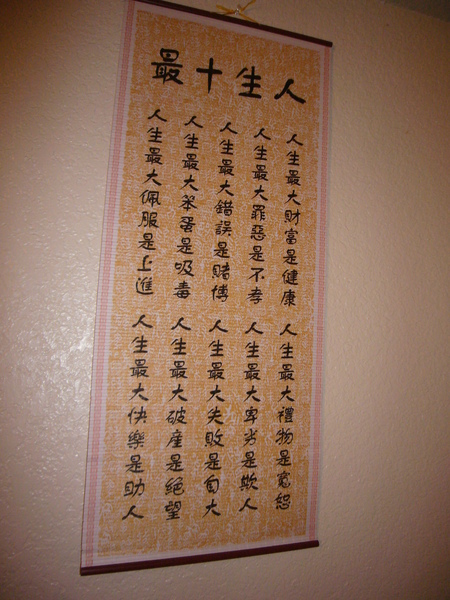 人生十最
人生最大財富是健康
人生最大罪惡是不孝
人生最大錯誤是賭博
人生最大笨蛋是吸毒
人生最大佩服是上進
人生最大禮物是寬恕
人生最大卑劣是欺人
人生最大失敗是自大
人生最大破產是絕望
人生最大快樂是助人